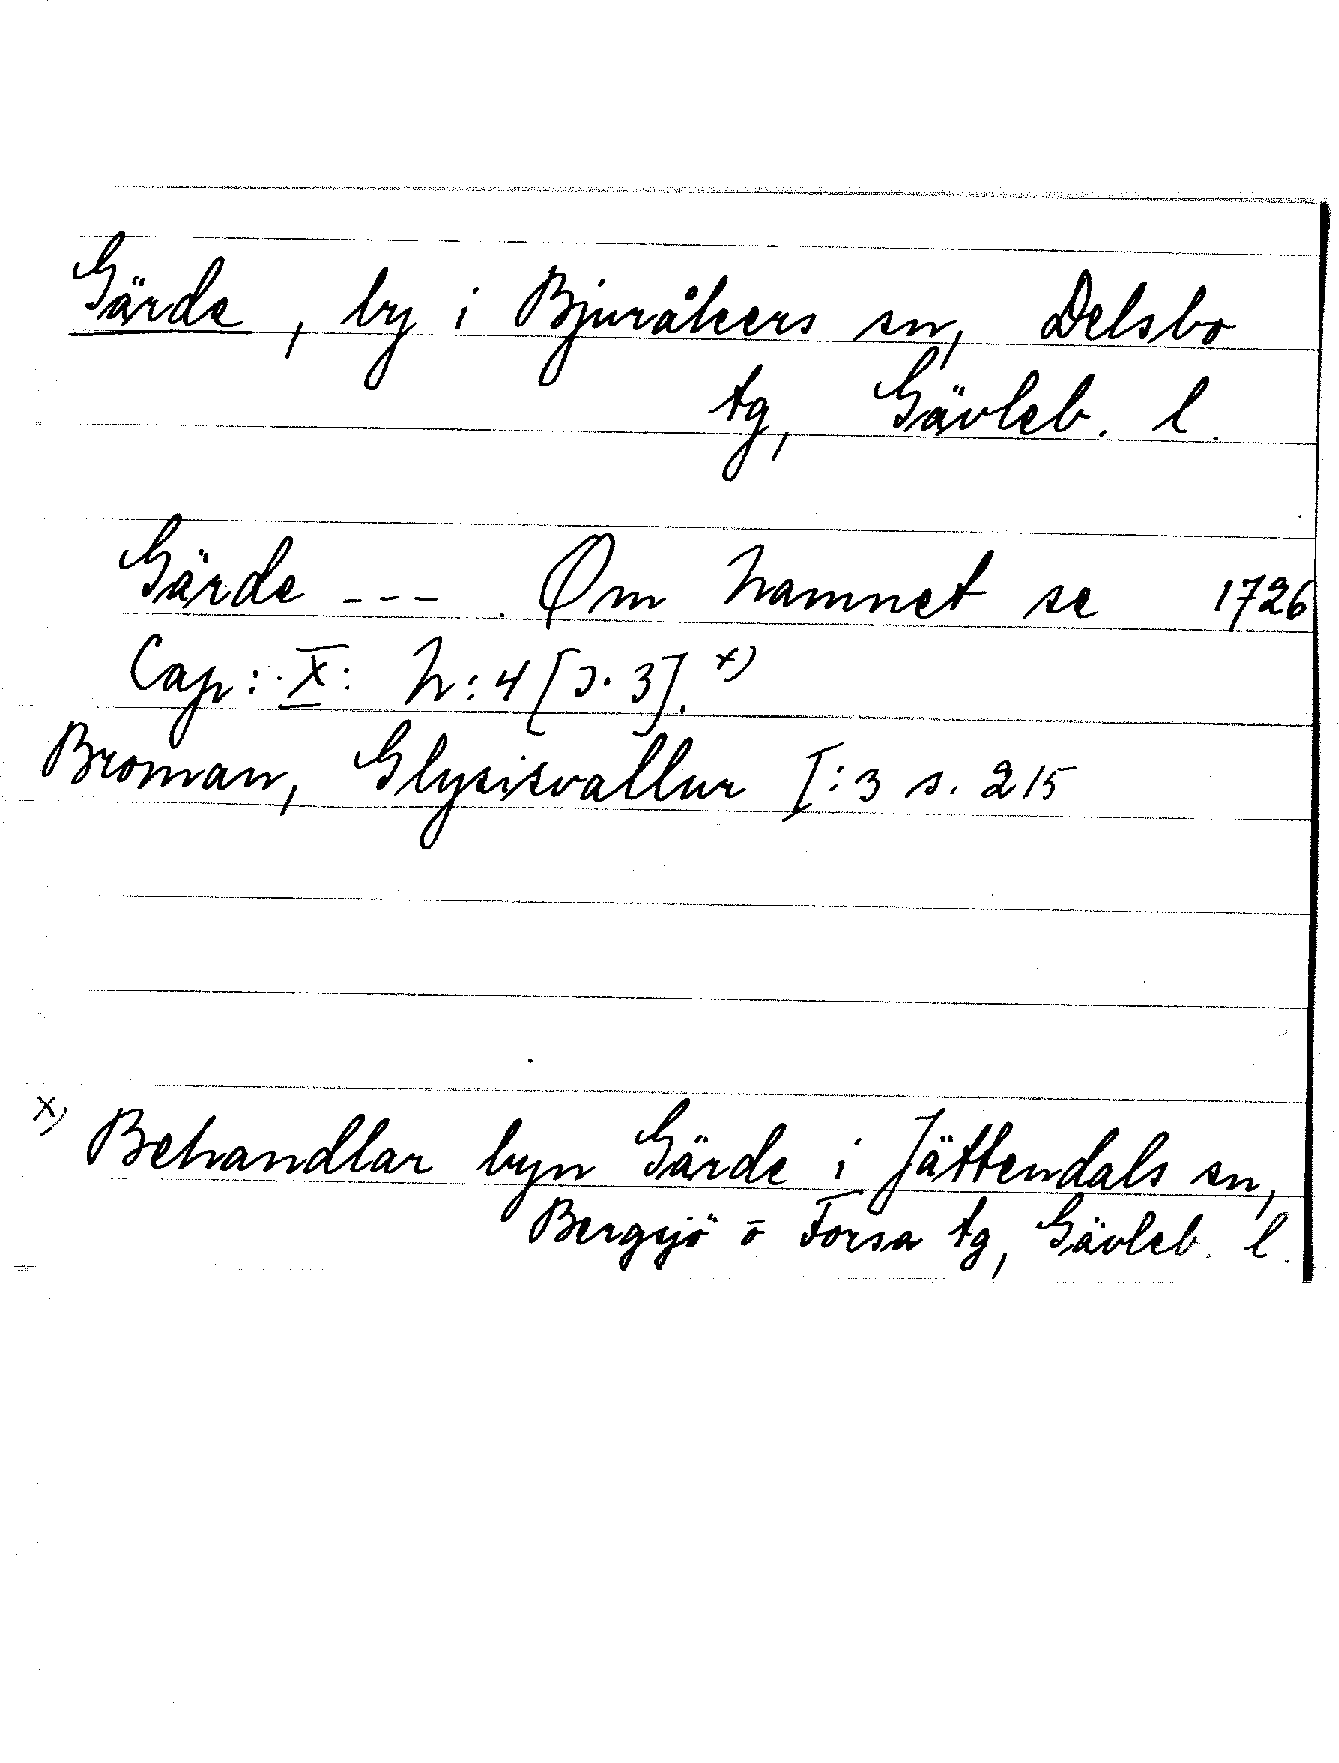 Gärde, by i Bjuråkers sn, Delsbo
tg, Gävleb. l.
Gärde ---. Om Namnet se 1726
Cap: X: N:4 [ɔ. 3]. x)
Broman, Glysisvallur I:3 s. 215
x) Behandlar byn Gärde i Jättendals sn,
Bergsjö o Forsa tg, Gävleb. l.